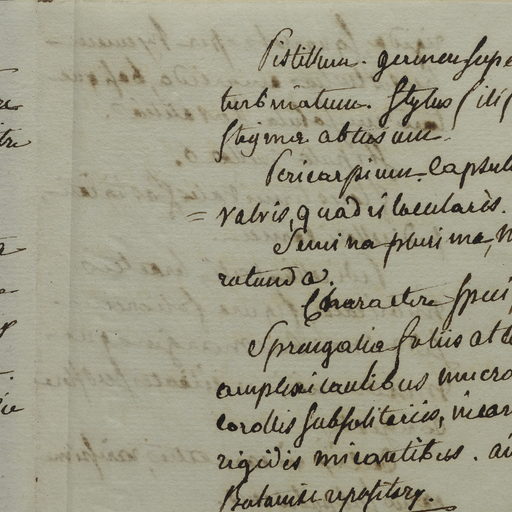 Pistillum. germen supe
turbinatum. Stylus fili
Stigma obtusum.
Pericarpium. Capsul
= valvis, quadrilocularis.
Semina plurima,
rotunda.
Charactere speci
Sprengalia foliis
amplexicaulibus mucro
corollis subsolitariis, incar
rigidis micantibus.
Botanist repository.